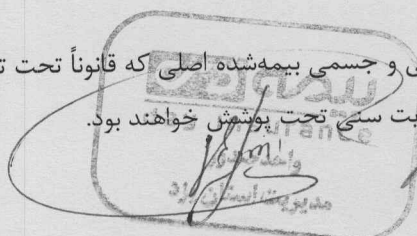 ی و جسمی بیمه‌شده اصلی که قانوناً تحت
یت سنی تحت پوشش خواهند بود.
insurance
واحد صدور
مدیریت استان یزد